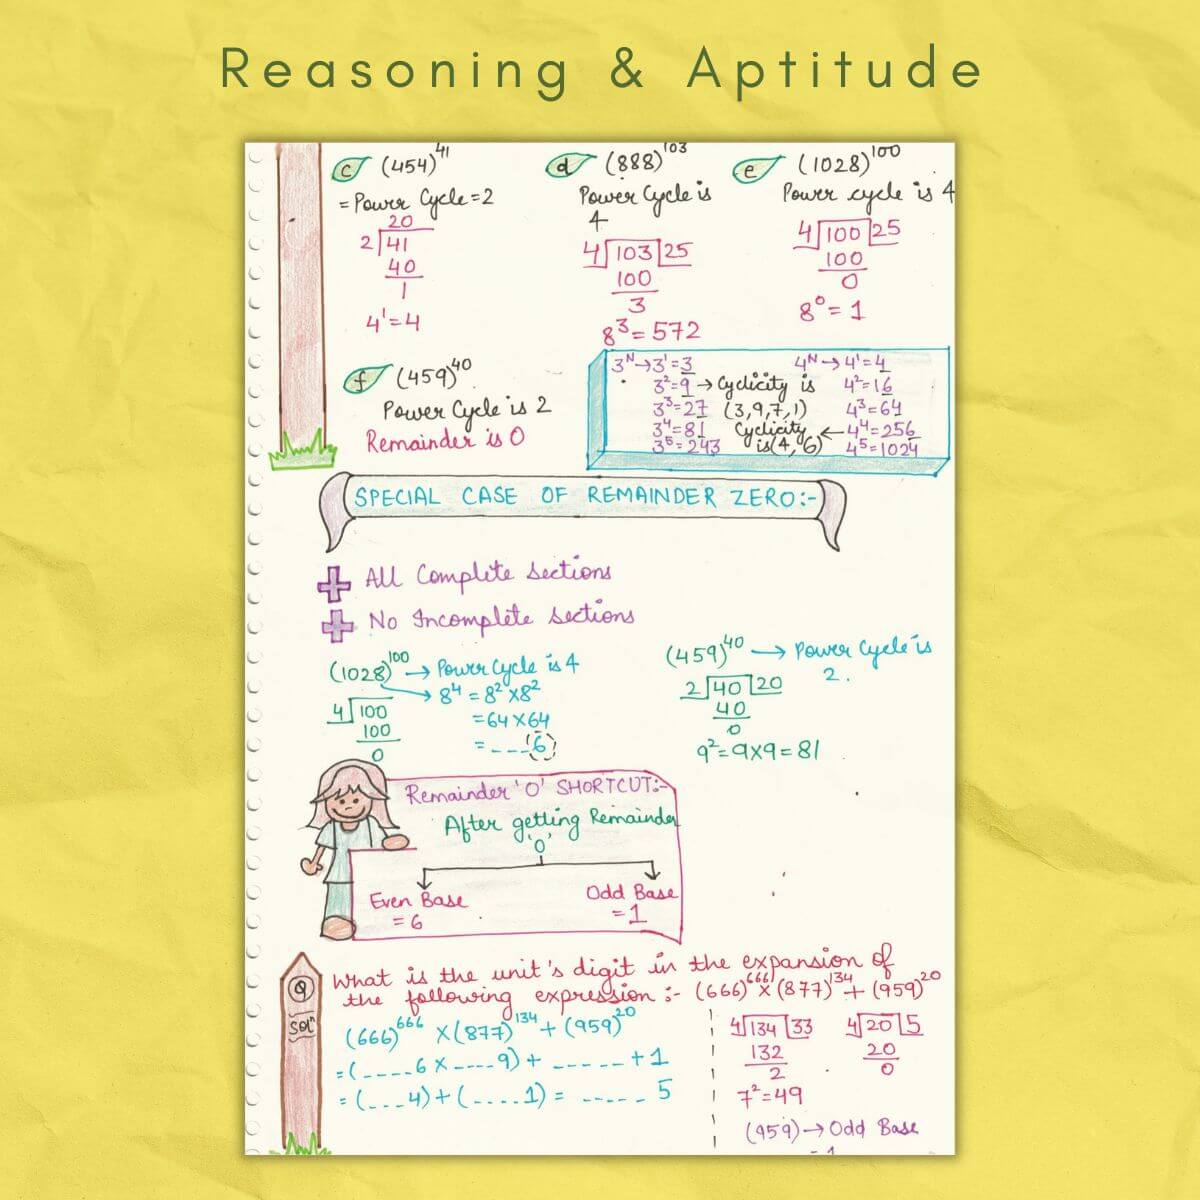 Reasoning & Aptitude
c (454)^41
= Power Cycle = 2
20
2 41
40
1
4^1 = 4
d (888)^103
Power Cycle is
4
4 103 25
100
3
8^3 = 572
e (1028)^100
Power cycle is 4
4 100 25
100
0
8^0 = 1
f (459)^40
Power Cycle is 2
Remainder is 0
3^N → 3^1 = 3
3^2 = 9 → Cyclicity is
3^3 = 27 (3,9,7,1)
3^4 = 81
3^5 = 243
4^N → 4^1 = 4
4^2 = 16
4^3 = 64
Cyclicity ← 4^4 = 256
is (4, 6) 4^5 = 1024
SPECIAL CASE OF REMAINDER ZERO:-
All Complete Sections
No Incomplete Sections
(1028)^100 → Power Cycle is 4
→ 8^4 = 8^2 × 8^2
= 64 × 64
= _ _ _ (6)
4 100
100
0
(459)^40 → Power Cycle is
2.
2 40 20
40
0
9^2 = 9×9 = 81
Remainder 'O' SHORTCUT:-
After getting Remainder
'0'
Even Base
= 6
Odd Base
= 1
Q What is the unit's digit in the expansion of
the following expression :- (666)^666 × (877)^134 + (959)^20
Sol^n
(666)^666 × (877)^134 + (959)^20
= (_ _ _ _ 6 × _ _ _ _ 9) + _ _ _ _ _ + 1
= (_ _ _ 4) + (_ _ _ _ 1) = _ _ _ _ _ 5
4 134 33
132
2
7^2 = 49
4 20 5
20
0
(959) → Odd Base
= 1